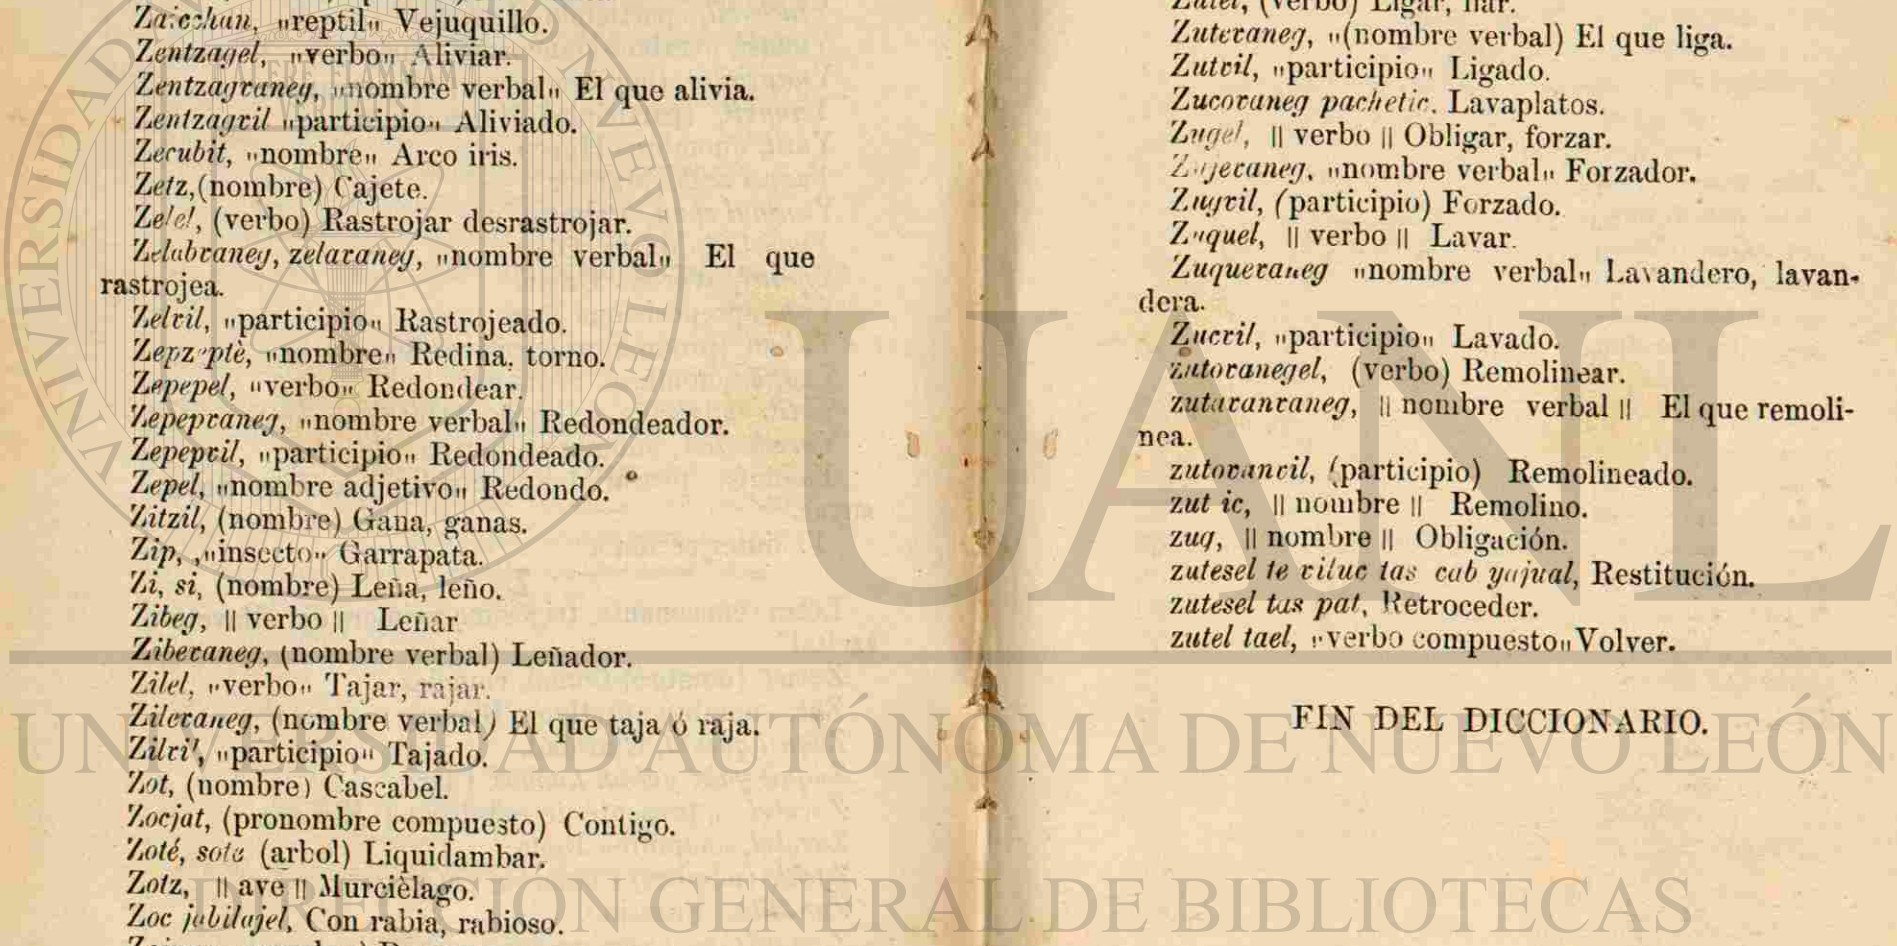 "reptil" Vejuquillo.
Zentzagel, "verbo" Aliviar.
Zentzagvaneg, "nombre verbal" El que alivia.
Zentzagvil "participio" Aliviado.
Zerubit, "nombre" Arco iris.
Zetz,(nombre) Cajete.
Zelel, (verbo) Rastrojar desrastrojar.
Zelabvaneg, zelavaneg, "nombre verbal" El que
rastrojea.
Zelvil, "participio" Rastrojeado.
"nombre" Redina, torno.
Zepepel, "verbo" Redondear.
Zepepvaneg, "nombre verbal" Redondeador.
Zepepvil, "participio" Redondeado.
Zepel, "nombre adjetivo" Redondo.
Zitzil, (nombre) Gana, ganas.
Zip, ,"insecto" Garrapata.
Zi, si, (nombre) Leña, leño.
Zibeg, || verbo || Leñar
Zibevaneg, (nombre verbal) Leñador.
Zilel, "verbo" Tajar, rajar.
Zilevaneg, (nombre verbal) El que taja ó raja.
Zilvil, "participio" Tajado.
Zot, (nombre) Cascabel.
Zocjat, (pronombre compuesto) Contigo.
Zoté, sote (arbol) Liquidambar.
Zotz, || ave || Murcièlago.
Zoc jabilajel, Con rabia, rabioso.
Zutel, (verbo) Ligar, liar.
Zutevaneg, "(nombre verbal) El que liga.
Zutvil, "participio" Ligado.
Zucovaneg pachetic. Lavaplatos.
Zugel, || verbo || Obligar, forzar.
Zujevaneg, "nombre verbal" Forzador.
Zugvil, (participio) Forzado.
Zuquel, || verbo || Lavar.
Zuquevaneg "nombre verbal" Lavandero, lavan-
dera.
Zucvil, "participio" Lavado.
zutovanegel, (verbo) Remolinear.
zutavanvaneg, || nombre verbal || El que remoli-
nea.
zutovanvil, (participio) Remolineado.
zut ic, || nombre || Remolino.
zuq, || nombre || Obligación.
zutesel te viluc tas cab yajual, Restitución.
zutesel tas pat, Retroceder.
zutel tael, "verbo compuesto" Volver.
FIN DEL DICCIONARIO.
UANL
UNIVERSIDAD AUTÓNOMA DE NUEVO LEÓN
DIRECCIÓN GENERAL DE BIBLIOTECAS